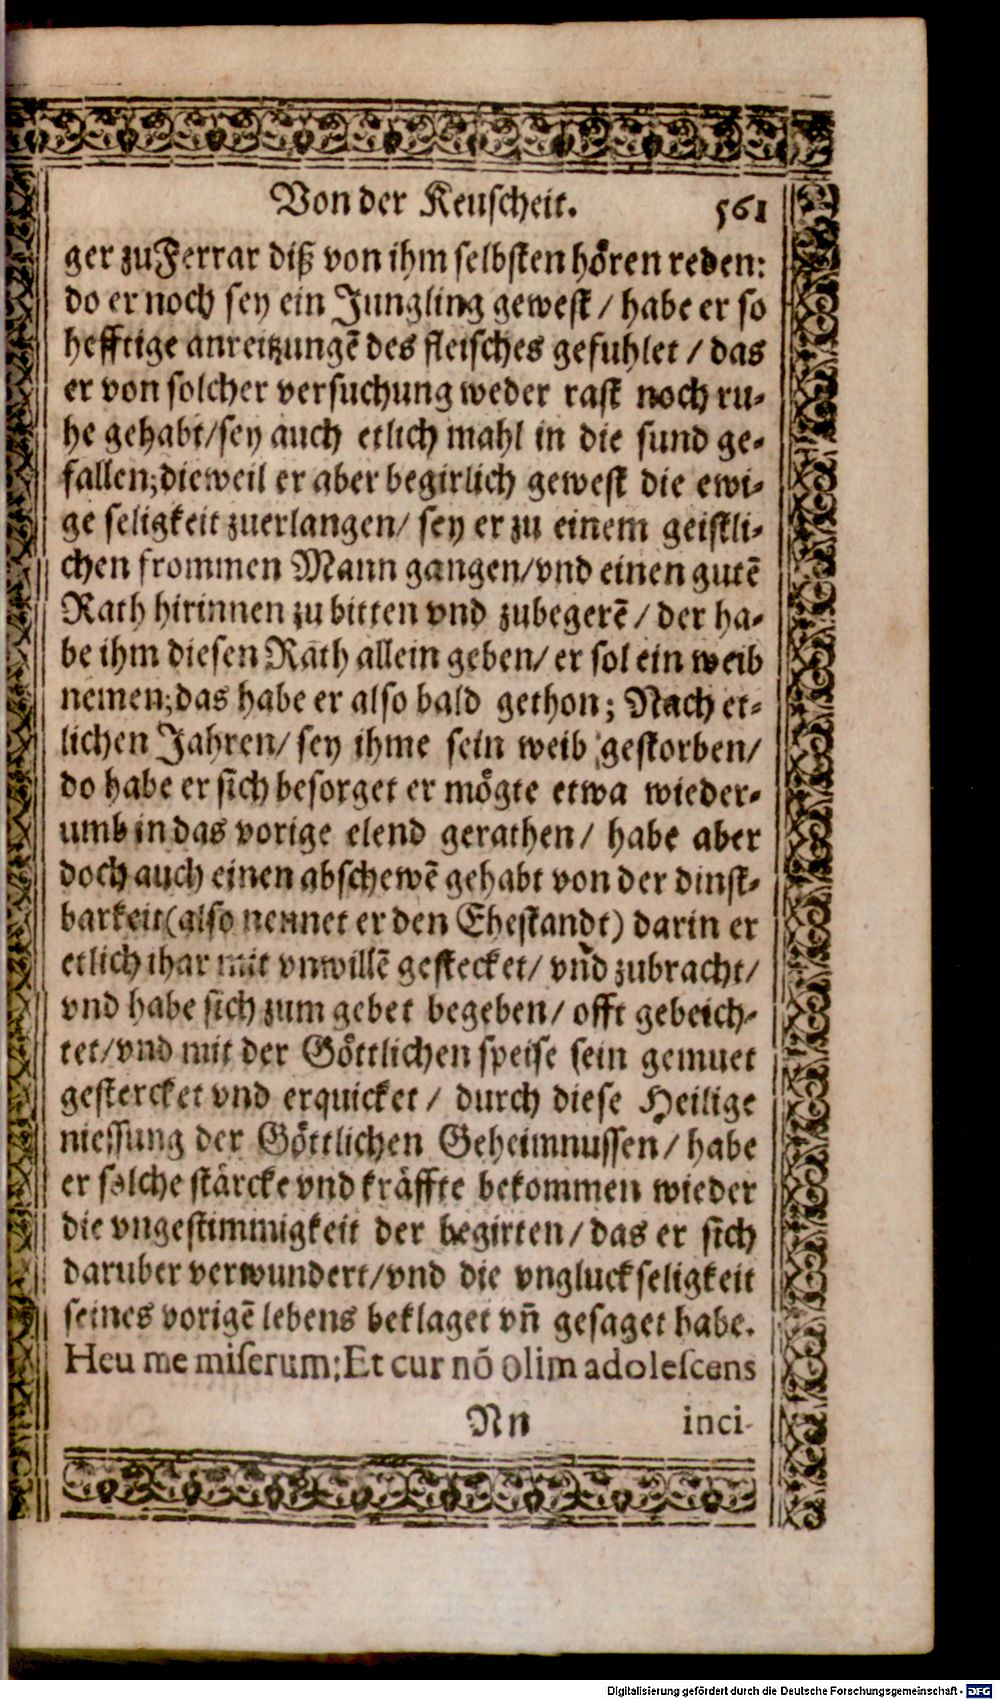 Von der Keuscheit. 561
ger zu Ferrar diß von ihm selbsten hören reden:
do er noch sey ein Jungling gewest / habe er so
hefftige anreitzungē des fleisches gefuhlet / das
er von solcher versuchung weder rast noch ru-
he gehabt/sey auch etlich mahl in die sund ge-
fallen;dieweil er aber begirlich gewest die ewi-
ge seligkeit zuerlangen/ sey er zu einem geistli-
chen frommen Mann gangen/vnd einen gutē
Rath hirinnen zu bitten vnd zubegerē / der ha-
be ihm diesen Rath allein geben/ er sol ein weib
nemen;das habe er also bald gethon; Nach et-
lichen Jahren/ sey ihme sein weib gestorben/
do habe er sich besorget er mögte etwa wieder-
umb in das vorige elend gerathen/ habe aber
doch auch einen abschewē gehabt von der dinst-
barkeit(also nennet er den Ehestandt) darin er
etlich ihar mit vnwillē gestecket/ vñd zubracht/
vnd habe sich zum gebet begeben/ offt gebeich-
tet/vnd mit der Göttlichen speise sein gemuet
gestercket vnd erquicket / durch diese Heilige
niessung der Göttlichen Geheimnussen/ habe
er solche stärcke vnd kräffte bekommen wieder
die vngestimmigkeit der begirten/das er sich
daruber verwundert/vnd die vngluckseligkeit
seines vorigē lebens beklaget vñ gesaget habe.
Heu me miserum;Et cur nō olim adolescens
Nn inci-
Digitalisierung gefördert durch die Deutsche Forschungsgemeinschaft - DFG